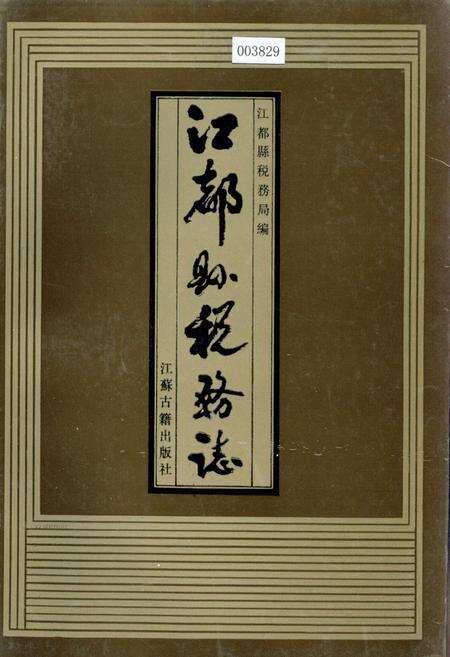 003829
江都縣税務局編
江都县税務誌
江蘇古籍出版社